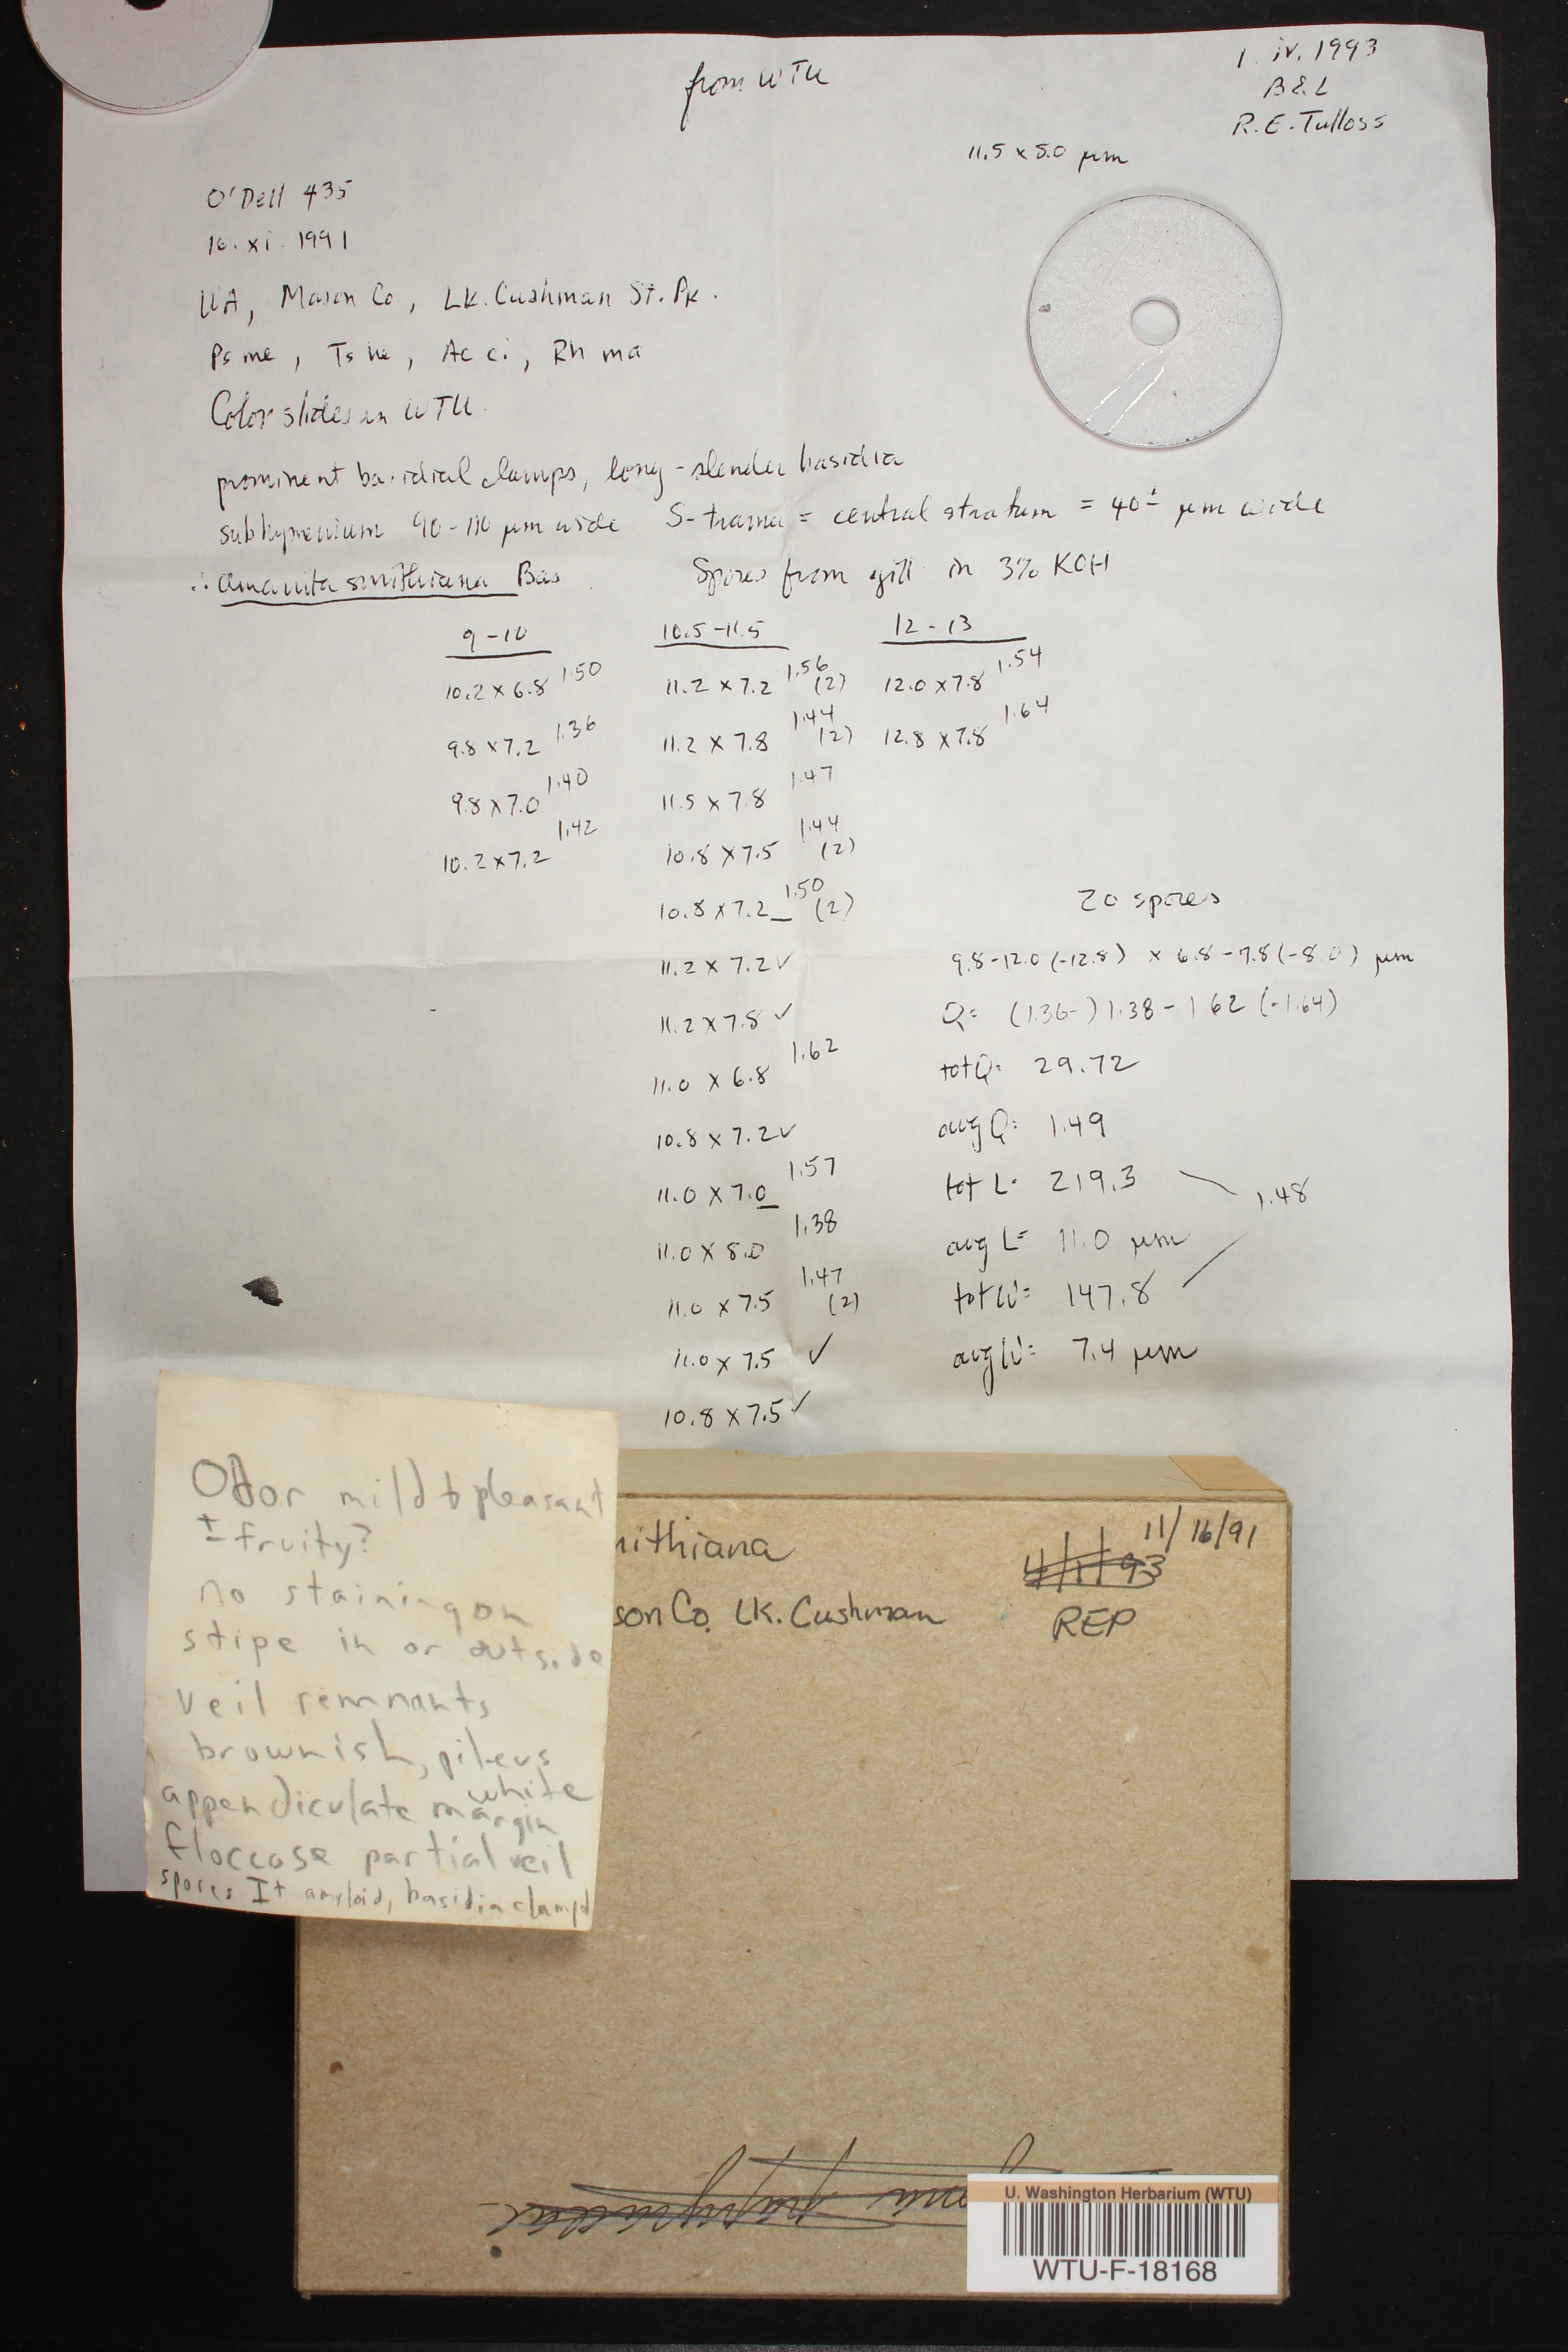 from WTU
1. iv. 1993
B&L
R.E. Tulloss
11.5 x 5.0 µm
O'Dell 435
16. xi. 1991
WA, Mason Co, Lk. Cushman St. Pk.
Psme, Tshe, Acci, Rhma
Color slides in WTU.
prominent basidial clamps, long-slender basidia
subhymenium 90-110 µm wide S-trama = central stratum = 40± µm wide
∴ Amanita smithiana Bas. Spores from gill in 3% KOH
9-10 10.5-11.5 12-13
10.2 x 6.8 1.50 11.2 x 7.2 1.56 (2) 12.0 x 7.8 1.54
9.8 x 7.2 1.36 11.2 x 7.8 1.44 (2) 12.8 x 7.8 1.64
9.8 x 7.0 1.40 11.5 x 7.8 1.47
10.2 x 7.2 1.42 10.8 x 7.5 1.44 (2)
10.8 x 7.2 1.50 (2) 20 spores
11.2 x 7.2 ✓ 9.8-12.0 (-12.8) x 6.8-7.8 (-8.0) µm
11.2 x 7.8 ✓ Q= (1.36-) 1.38-1.62 (-1.64)
11.0 x 6.8 1.62 totQ= 29.72
10.8 x 7.2 ✓ avgQ= 1.49
11.0 x 7.0 1.57 tot L= 219.3 1.48
11.0 x 8.0 1.38 avg L= 11.0 µm
11.0 x 7.5 1.47 (2) totW= 147.8
11.0 x 7.5 ✓ avgW= 7.4 µm
10.8 x 7.5 ✓
Odor mild to pleasant
± fruity?
no staining on
stipe in or outside
veil remnants
brownish, pileus
white
appendiculate margin
floccose partial veil
spores I+ amyloid, basidia clamp'd
mithiana 11/16/91
4/1/93
son Co. Lk. Cushman REP
U. Washington Herbarium (WTU)
WTU-F-18168